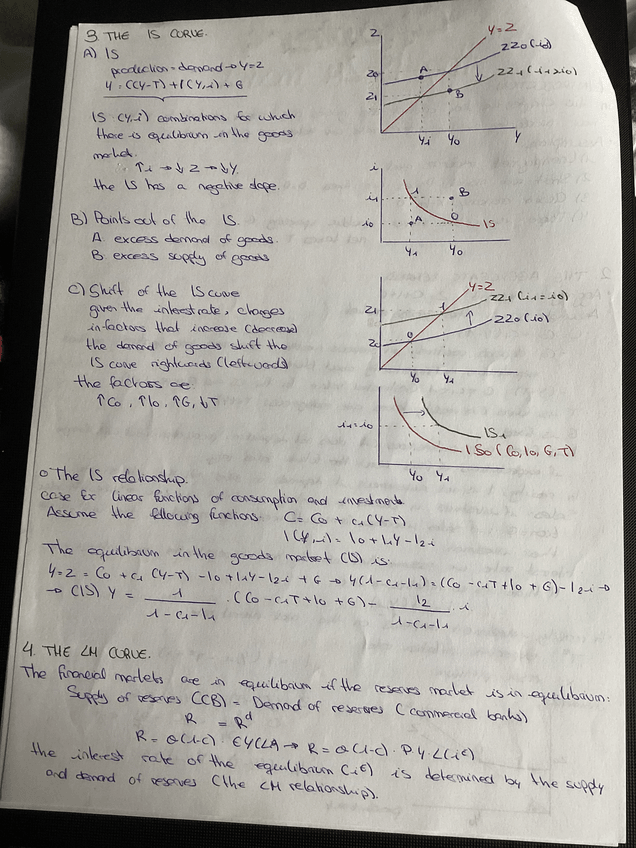 3 THE IS CURVE.
A) IS
production = demand → Y=Z
Y = C(Y-T) + I(Y,i) + G
IS: (Y,i) combinations for which
there is equilibrium in the goods
market.
↑i → ↓Z → ↓Y.
the IS has a negative slope.
Z
Y=Z
ZZ0 (i0)
ZZ1 (i1>i0)
Z0
Z1
A
B
Y1
Y0
Y
B) Points out of the IS.
A: excess demand of goods.
B: excess supply of goods
i
i1
i0
1
B
A
0
IS
Y1
Y0
C) Shift of the IS curve
given the interest rate, changes
in factors that increase (decrease)
the demand of goods shift the
IS curve rightwards (leftwards)
the factors are:
↑C0, ↑I0, ↑G, ↓T
Y=Z
ZZ1 (i1=i0)
ZZ0 (i0)
Z1
Z0
1
0
Y0
Y1
i1=i0
IS1
IS0 (C0, I0, G, T)
Y0
Y1
o The IS relationship.
case for linear functions of consumption and investment.
Assume the following functions: C = C0 + c1 (Y-T)
I(Y,i) = I0 + I1Y - I2i
The equilibrium in the goods market (IS) is:
Y=Z = C0 + c1 (Y-T) + I0 + I1Y - I2i + G → Y(1-c1-I1) = (C0 - c1T + I0 + G) - I2i →
→ (IS) Y = 1 / 1-c1-I1 · (C0 - c1T + I0 + G) - I2 / 1-c1-I1 · i
4. THE LM CURVE.
The financial markets are in equilibrium if the reserves market is in equilibrium:
Supply of reserves (CB) = Demand of reserves (commercial banks)
R = R^d
R = θ(1-c) · €Y L(i) → R = θ(1-c) · PY · L(i€)
the interest rate of the equilibrium (i€) is determined by the supply
and demand of reserves (the LM relationship).